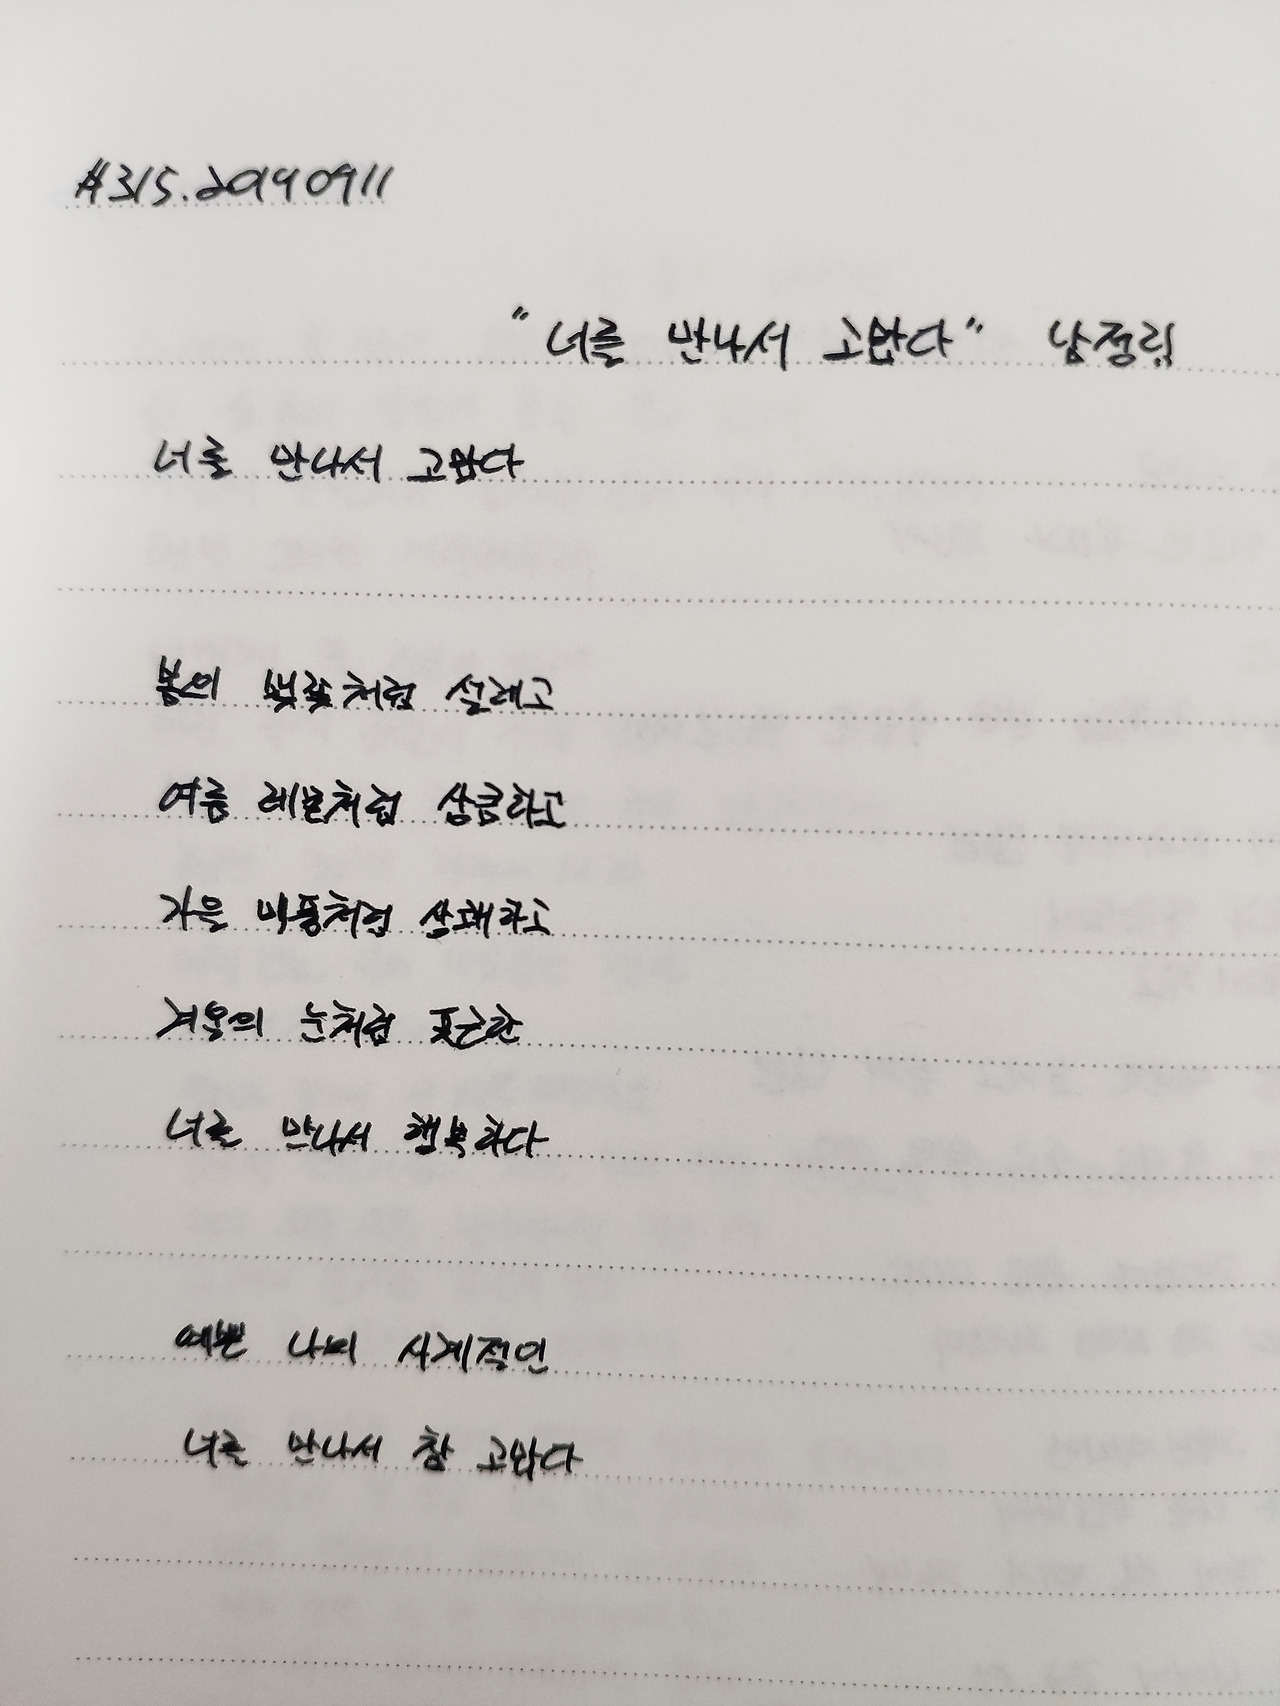 #315.20190911
"너를 만나서 고맙다" 남정림
너를 만나서 고맙다
봄의 벚꽃처럼 설레고
여름 레몬처럼 상큼하고
가을 미풍처럼 상쾌하고
겨울의 눈처럼 포근한
너를 만나서 행복하다
예쁜 나의 사계적인
너를 만나서 참 고맙다